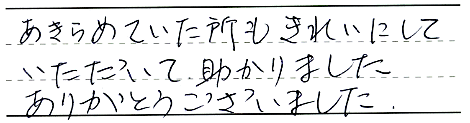 あきらめていた所もきれいにして
いただいて助かりました
ありがとうございました.